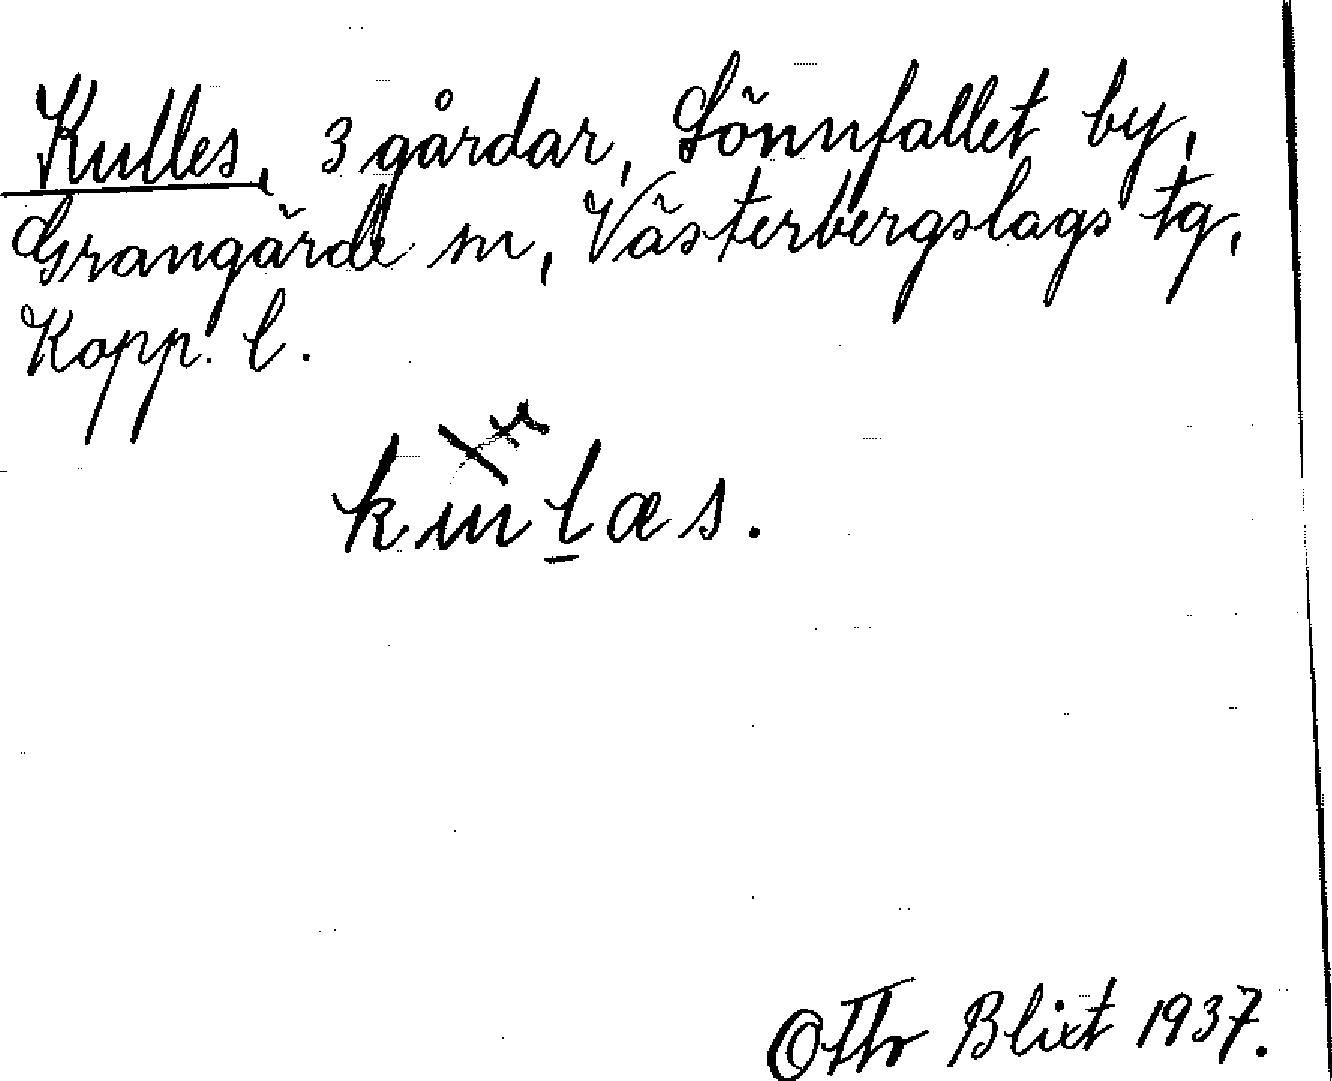 Kulles, 3 gårdar, Sönnfallet by,
Grangärde sn, Västerbergslags tg,
Kopp. l.
Blixt 1937.